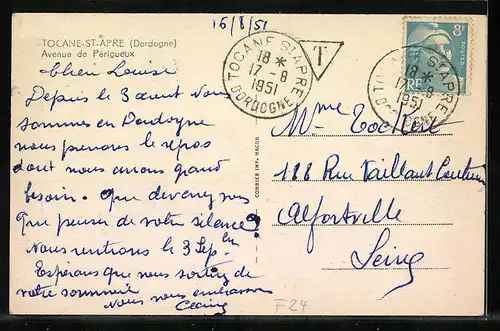 16/8/51
TOCANE-ST-APRE (Dordogne)
Avenue de Périgueux
Chère Louise
Depuis le 3 août nous
sommes en Dordogne
nous prenons le repos
dont nous avions grand
besoin. que devenez vous
Que penser de votre silence?
Nous rentrons le 3 Sep
Espérons que vous sortirez de
votre sommeil
Nous vous embrassons
TOCANE ST APRE
18 *
17 - 8
1951
DORDOGNE
T
TOCANE ST APRE
18 *
17 - 8
1951
DORDOGNE
8F
POSTES
RF
COMBIER IMP. MACON
Mme
188 Rue Vaillant Couturier
Alfortville
Seine
F24